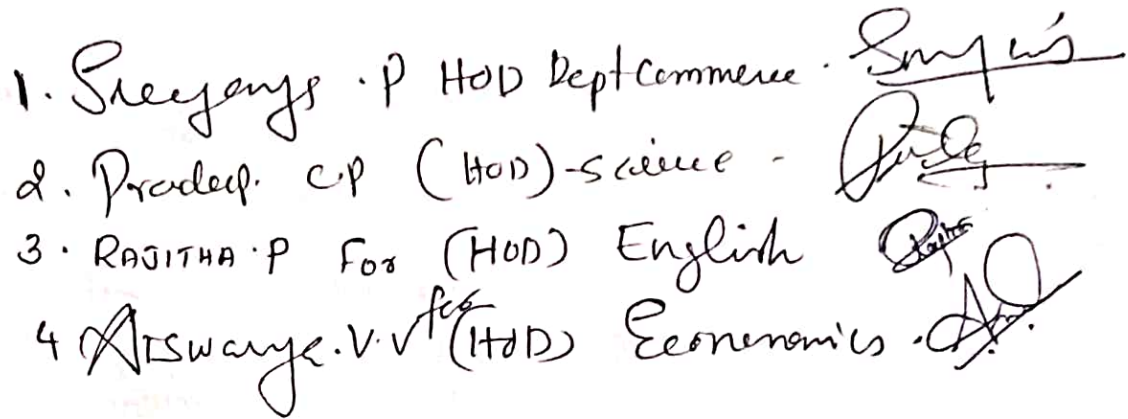 1. Sreyanys .P HOD Dept Commerce.
2. Pradeep. CP (HOD)-science -
3. RAJITHA.P For (HOD) English Rajitha
4 Aiswarya.V.V for (HOD) Econenomics.